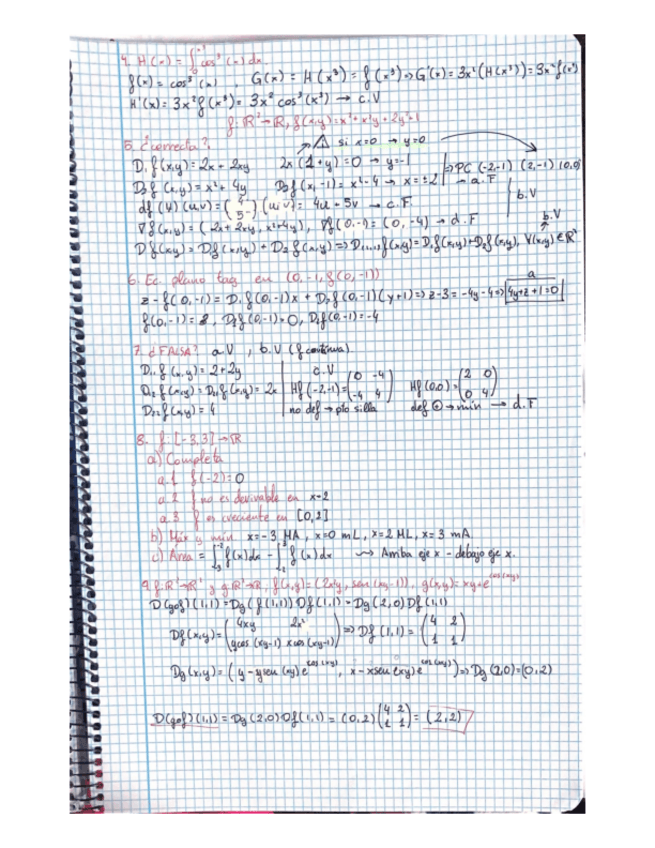 4. H(x) = ∫ cos³(x) dx
f(x) = cos³(x) , G(x) = H(x³) = f(x³) ⇒ G'(x) = 3x²(H(x³)) = 3x² f(x³)
H'(x) = 3x² f(x³) = 3x² cos³(x³) → c.V
f: R²→R, f(x,y) = x²+x²y+2y²+1
5. ¿Correcta?
⚠ si x=0 → y=0
D₁f(x,y) = 2x + 2xy 2x(1+y) = 0 → y=-1 ⇒ PC (-2,-1) (2,-1) (0,0)
D₂f(x,y) = x² + 4y D₂f(x,-1) = x²-4 → x = ±2 → a.F b.V
df(4)(u,v) = (4 5)(u,v) = 4u + 5v → c.F
∇f(x,y) = (2x+2xy, x²+4y), ∇f(0,-1) = (0,-4) → d.F
b.V
Df(x,y) = D₁f(x,y) + D₂f(x,y) ⇒ D₍₁,₁₎f(x,y) = D₁f(x,y)+D₂f(x,y), ∀(x,y) ∈ R²
6. Ec. plano tag en (0,-1,f(0,-1))
a
z - f(0,-1) = D₁f(0,-1)x + D₂f(0,-1)(y+1) ⇒ z-3 = -4y-4 ⇒ 4y+z+1=0
f(0,-1) = 3, D₁f(0,-1) = 0, D₂f(0,-1) = -4
7. ¿FALSA? a.V , b.V (f continua).
D₁₁f(x,y) = 2+2y c.V
D₁₂f(x,y) = D₂₁f(x,y) = 2x Hf(-2,-1) = (0 -4 -4 4) Hf(0,0) = (2 0 0 4)
D₂₂f(x,y) = 4 no def → pto silla def ⊕ → min → d.F
8. f: [-3,3] → R
a) Completa
a.1 f(-2) = 0
a.2 f no es derivable en x=2
a.3 f es creciente en [0,2]
b) Máx y mín x=-3 MA, x=0 mL, x=2 ML, x=3 mA
c) Área = ∫f(x)dx - ∫f(x)dx ⟿ Arriba eje x - debajo eje x.
9. f: R²→R² y g: R²→R, f(x,y) = (2x²y, sen(xy-1)), g(x,y) = xy+e^cos(xy)
D(gof)(1,1) = Dg(f(1,1))Df(1,1) = Dg(2,0)Df(1,1)
Df(x,y) = (4xy 2x² ycos(xy-1) xcos(xy-1)) ⇒ Df(1,1) = (4 2 1 1)
Dg(x,y) = (y-ysen(xy)e^cos(xy), x-xsen(xy)e^cos(xy)) ⇒ Dg(2,0) = (0,2)
D(gof)(1,1) = Dg(2,0)Df(1,1) = (0,2)(4 2 1 1) = (2,2)